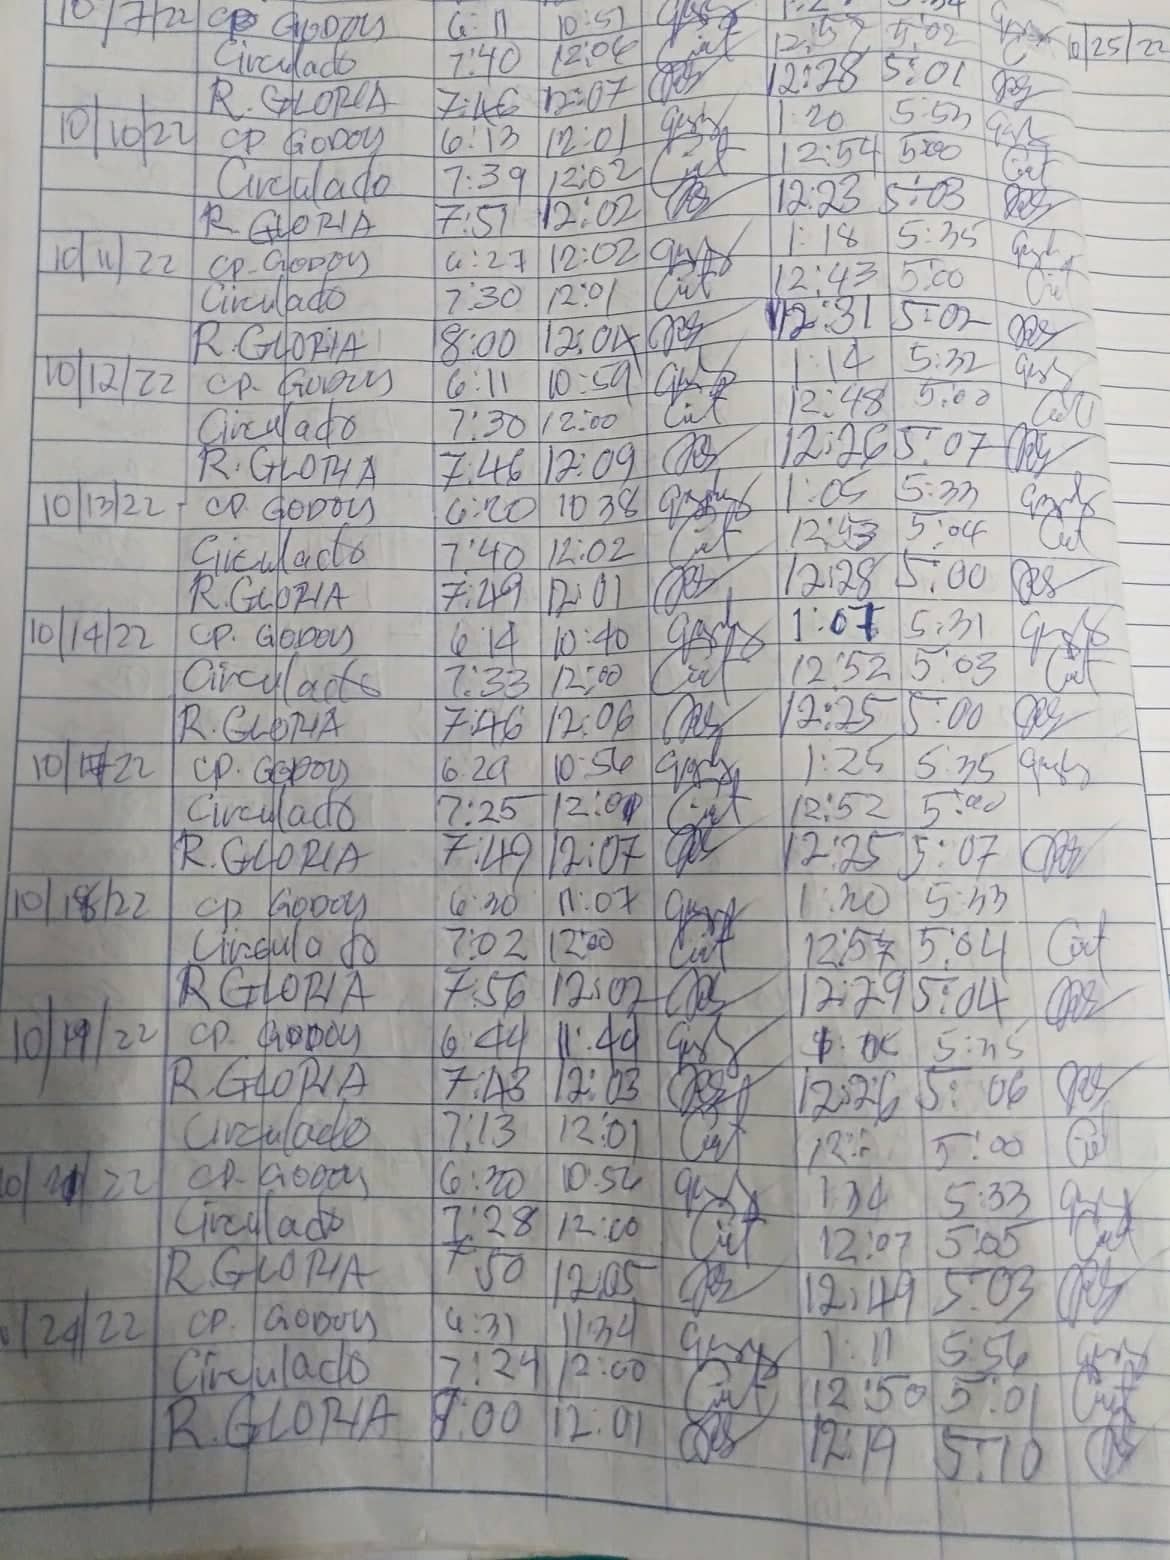 10/7/22 CP GODOY 6:11 10:51
Circulado 7:40 12:06 Cit 12:57 5:02 10/25/22
R. GLORIA 7:46 12:07 12:28 5:01
10/10/22 CP GODOY 6:13 12:01 1:20 5:53
Circulado 7:39 12:02 Cit 12:54 5:00 Cit
R. GLORIA 7:51 12:02 12:23 5:03
10/11/22 CP. GODOY 6:27 12:02 1:18 5:35
Circulado 7:30 12:01 Cit 12:43 5:00 Cit
R. GLORIA 8:00 12:04 12:31 5:02
10/12/22 CP. GODOY 6:11 10:59 1:14 5:32
Circulado 7:30 12:00 Cit 12:48 5:00 Cit
R. GLORIA 7:46 12:09 12:26 5:07
10/13/22 - CP. GODOY 6:20 10 38 1:05 5:33
Circulado 7:40 12:02 Cit 5:04 Cit
R. GLORIA 7:49 12:01 12:28 5:00
10/14/22 CP. GODOY 6:14 10:40 1:07 5:31
Circulado 7:33 12:00 Cit 12:52 5:03 Cit
R. GLORIA 7:46 12:06 12:25 5:00
10/17/22 CP. GODOY 6:29 10:56 1:25 5:35
Circulado 7:25 12:01 Cit 12:52 5:00
R. GLORIA 7:49 12:07 12:25 5:07
10/18/22 CP GODOY 6:30 11:07 5:33
Circulado 7:02 12:00 Cit 12:57 5:04 Cit
R GLORIA 7:56 12:02 12:29 5:04
10/19/22 CP. GODOY 6:44 11:49
R. GLORIA 7:43 12:03 12:26 5:06
Circulado 7:13 12:01 Cit 5:00 Cit
22 CP. GODOY 6:30 10:56 5:33
Circulado 7:28 12:00 Cit 12:07 5:05 Cit
R. GLORIA 7 50 12:05 12:49 5:03
/24/22 CP. GODOY 6:31 11:34 1:11 5:56
Circulado 7:24 12:00 Cit 12:50 5:01 Cit
R. GLORIA :00 12:01 12:19 5:10